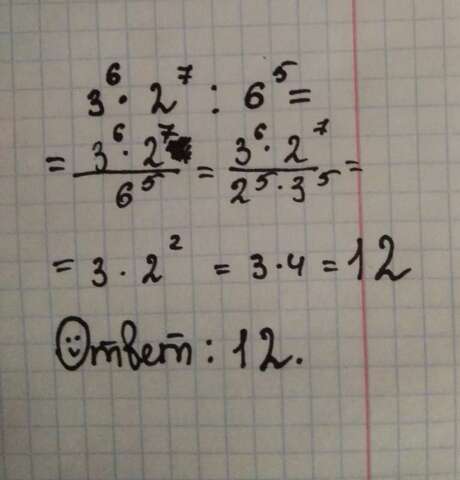 3⁶ · 2⁷ : 6⁵ =
= 3⁶ · 2⁷ / 6⁵ = 3⁶ · 2⁷ / 2⁵ · 3⁵ =
= 3 · 2² = 3 · 4 = 12
Ответ: 12.